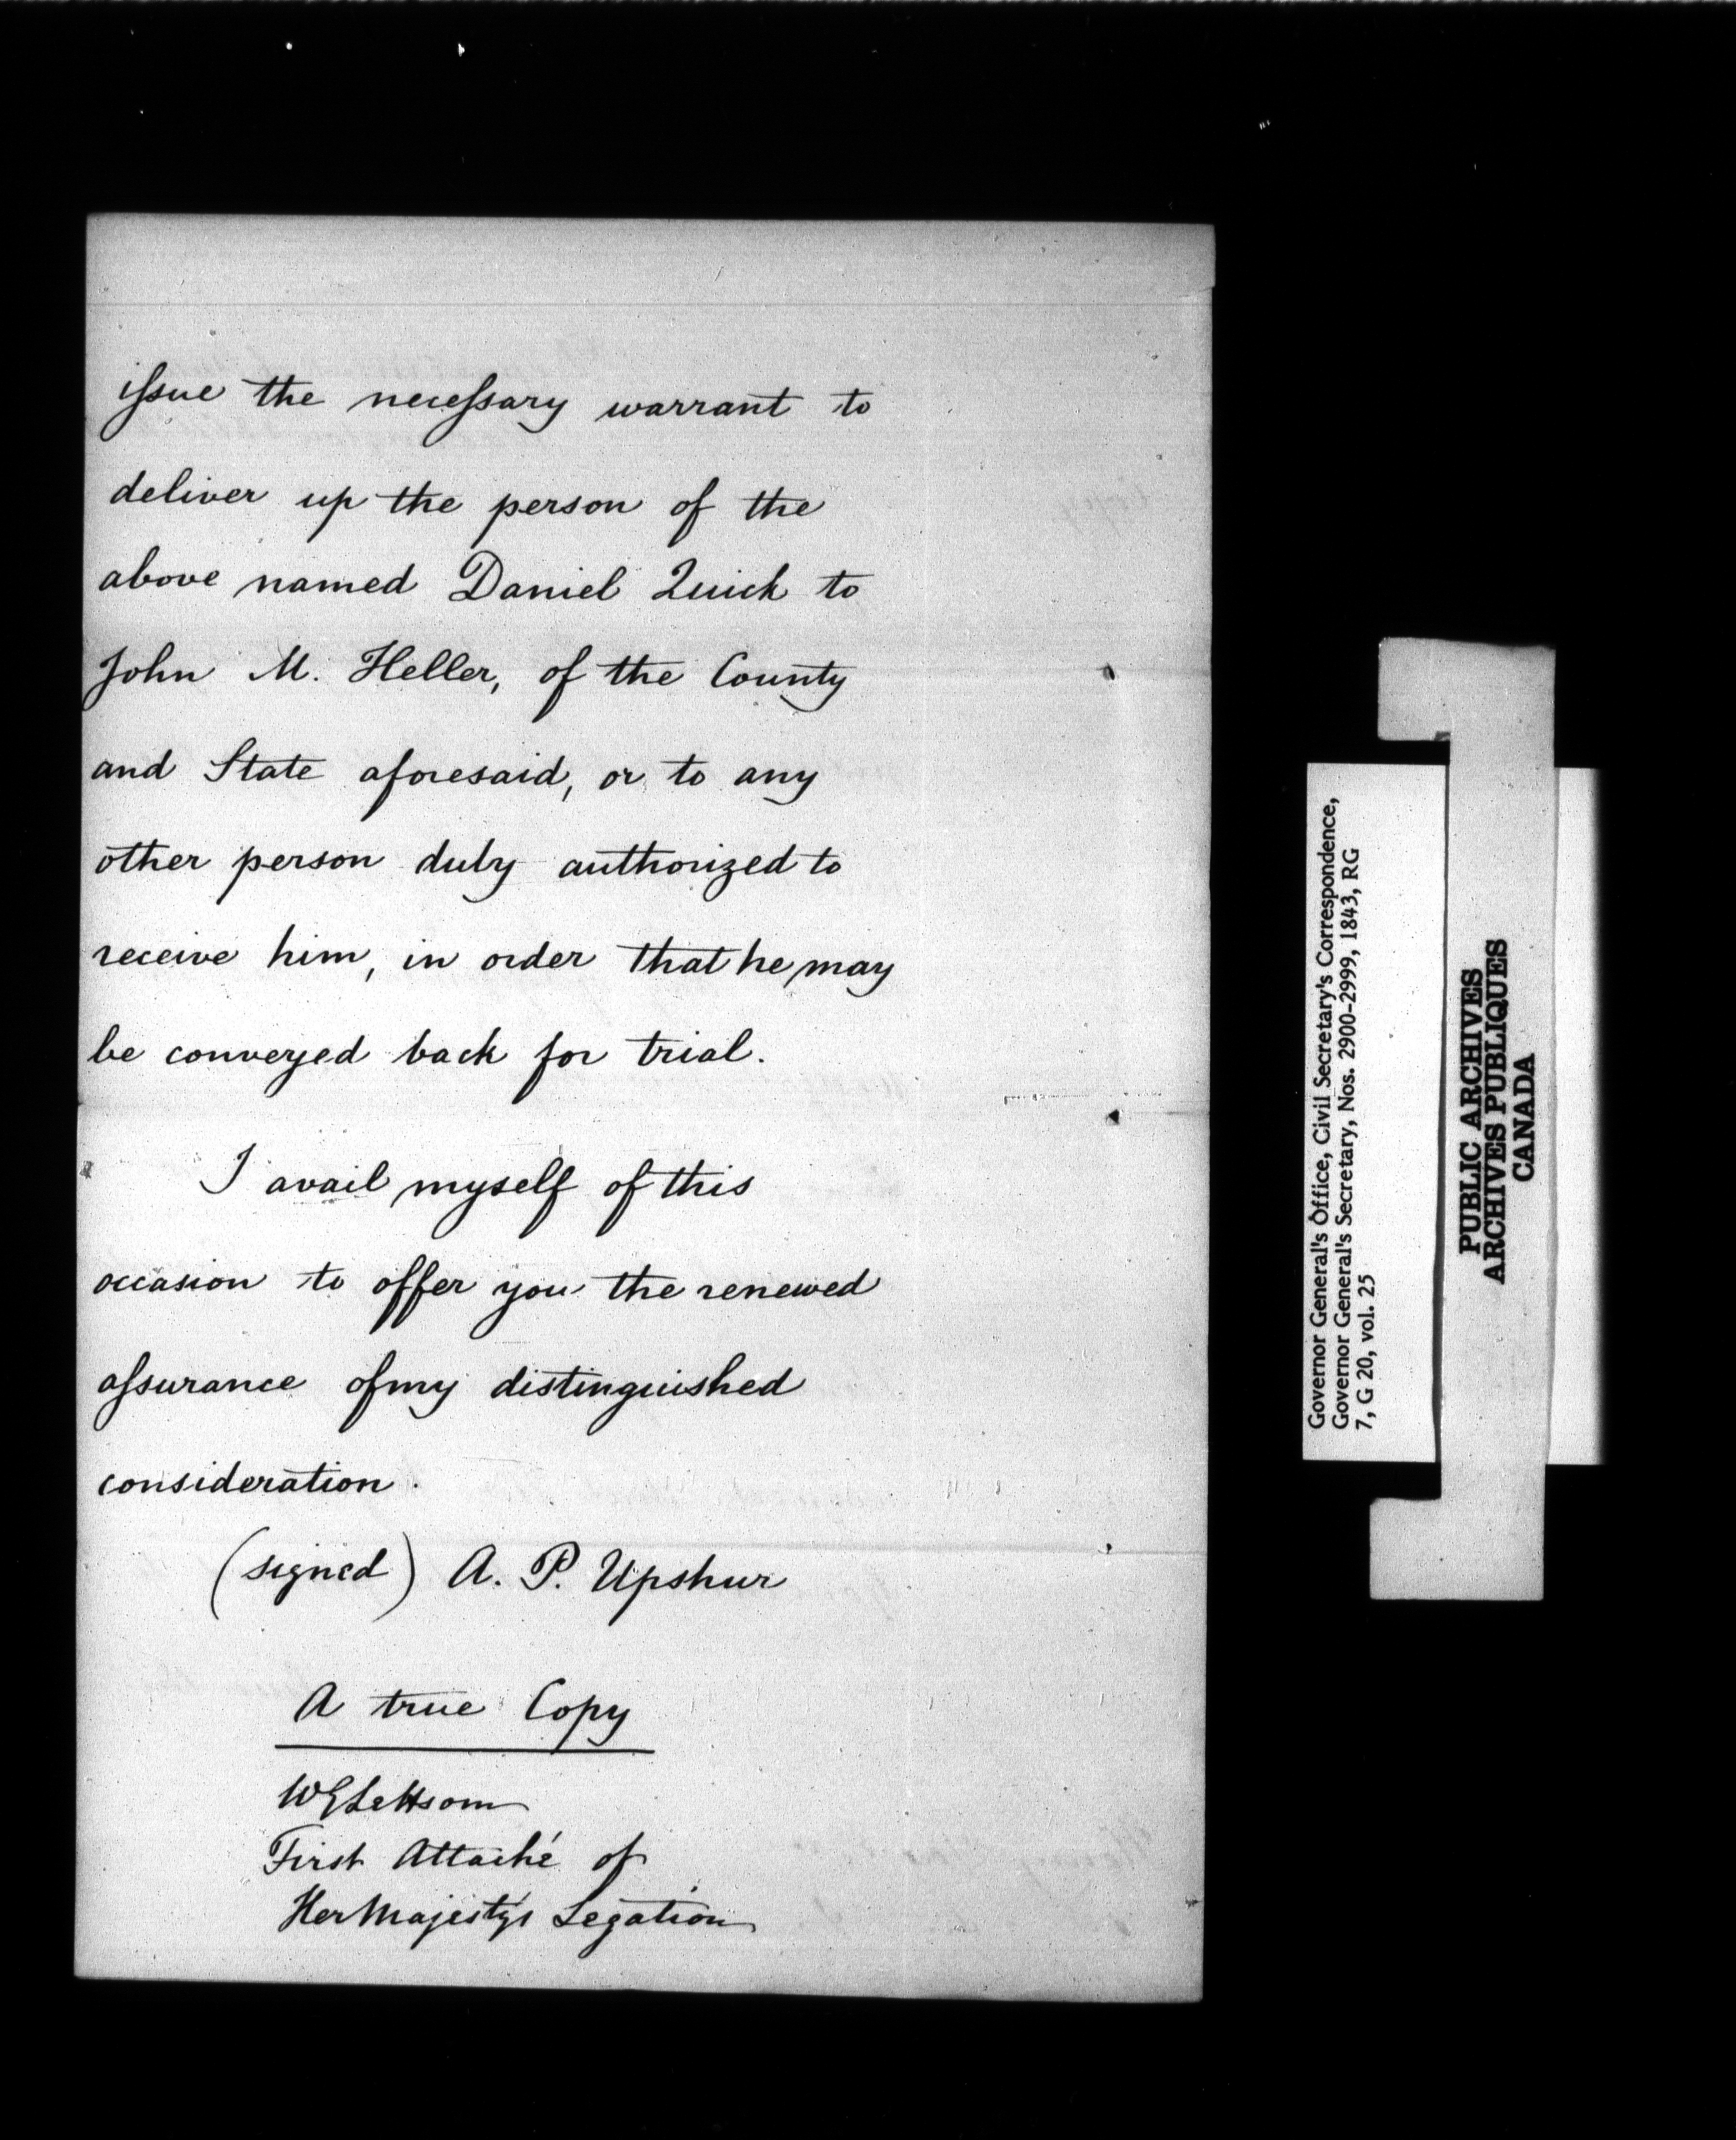 issue the necessary warrant to
deliver up the person of the
above named Daniel Quick to
John M. Heller, of the County
and State aforesaid, or to any
other person duly authorized to
receive him, in order that he may
be conveyed back for trial.
I avail myself of this
occasion to offer you the renewed
assurance of my distinguished
consideration.
(signed) A. P. Upshur
A true Copy
W G Lettsom
First Attaché of
Her Majesty's Legation
Governor General's Office, Civil Secretary's Correspondence,
Governor General's Secretary, Nos. 2900-2999, 1843, RG
7, G 20, vol. 25
PUBLIC ARCHIVES
ARCHIVES PUBLIQUES
CANADA